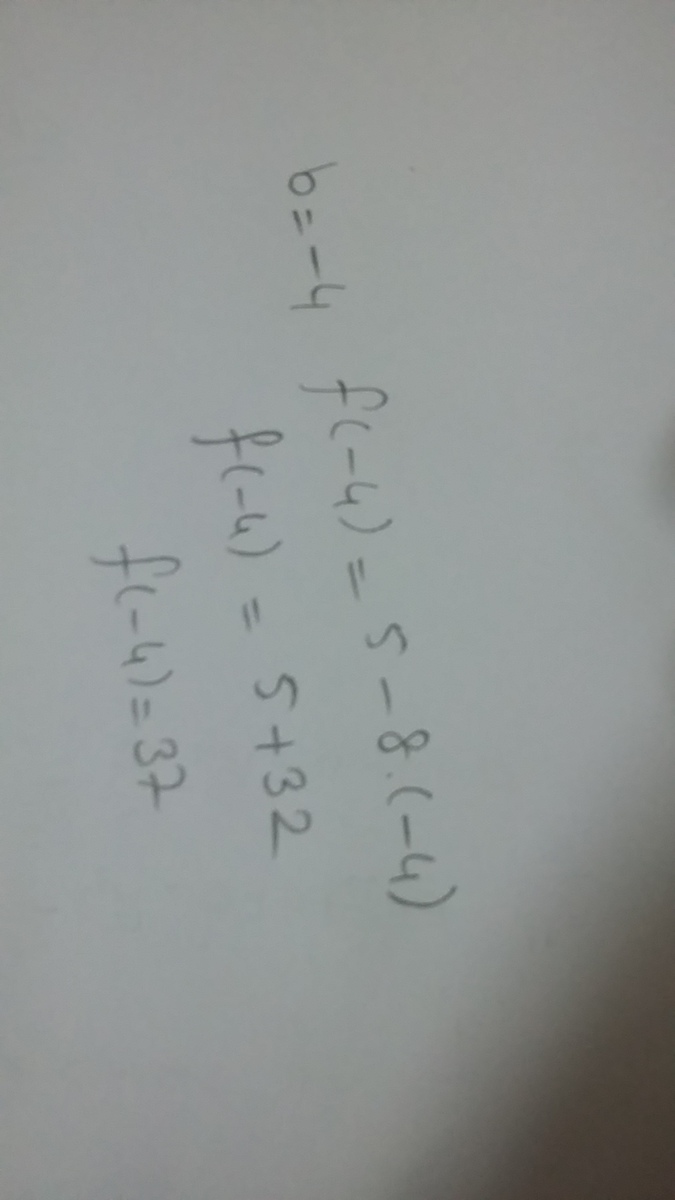 b=-4 f(-4) = 5-8.(-4)
f(-4) = 5+32
f(-4)=37